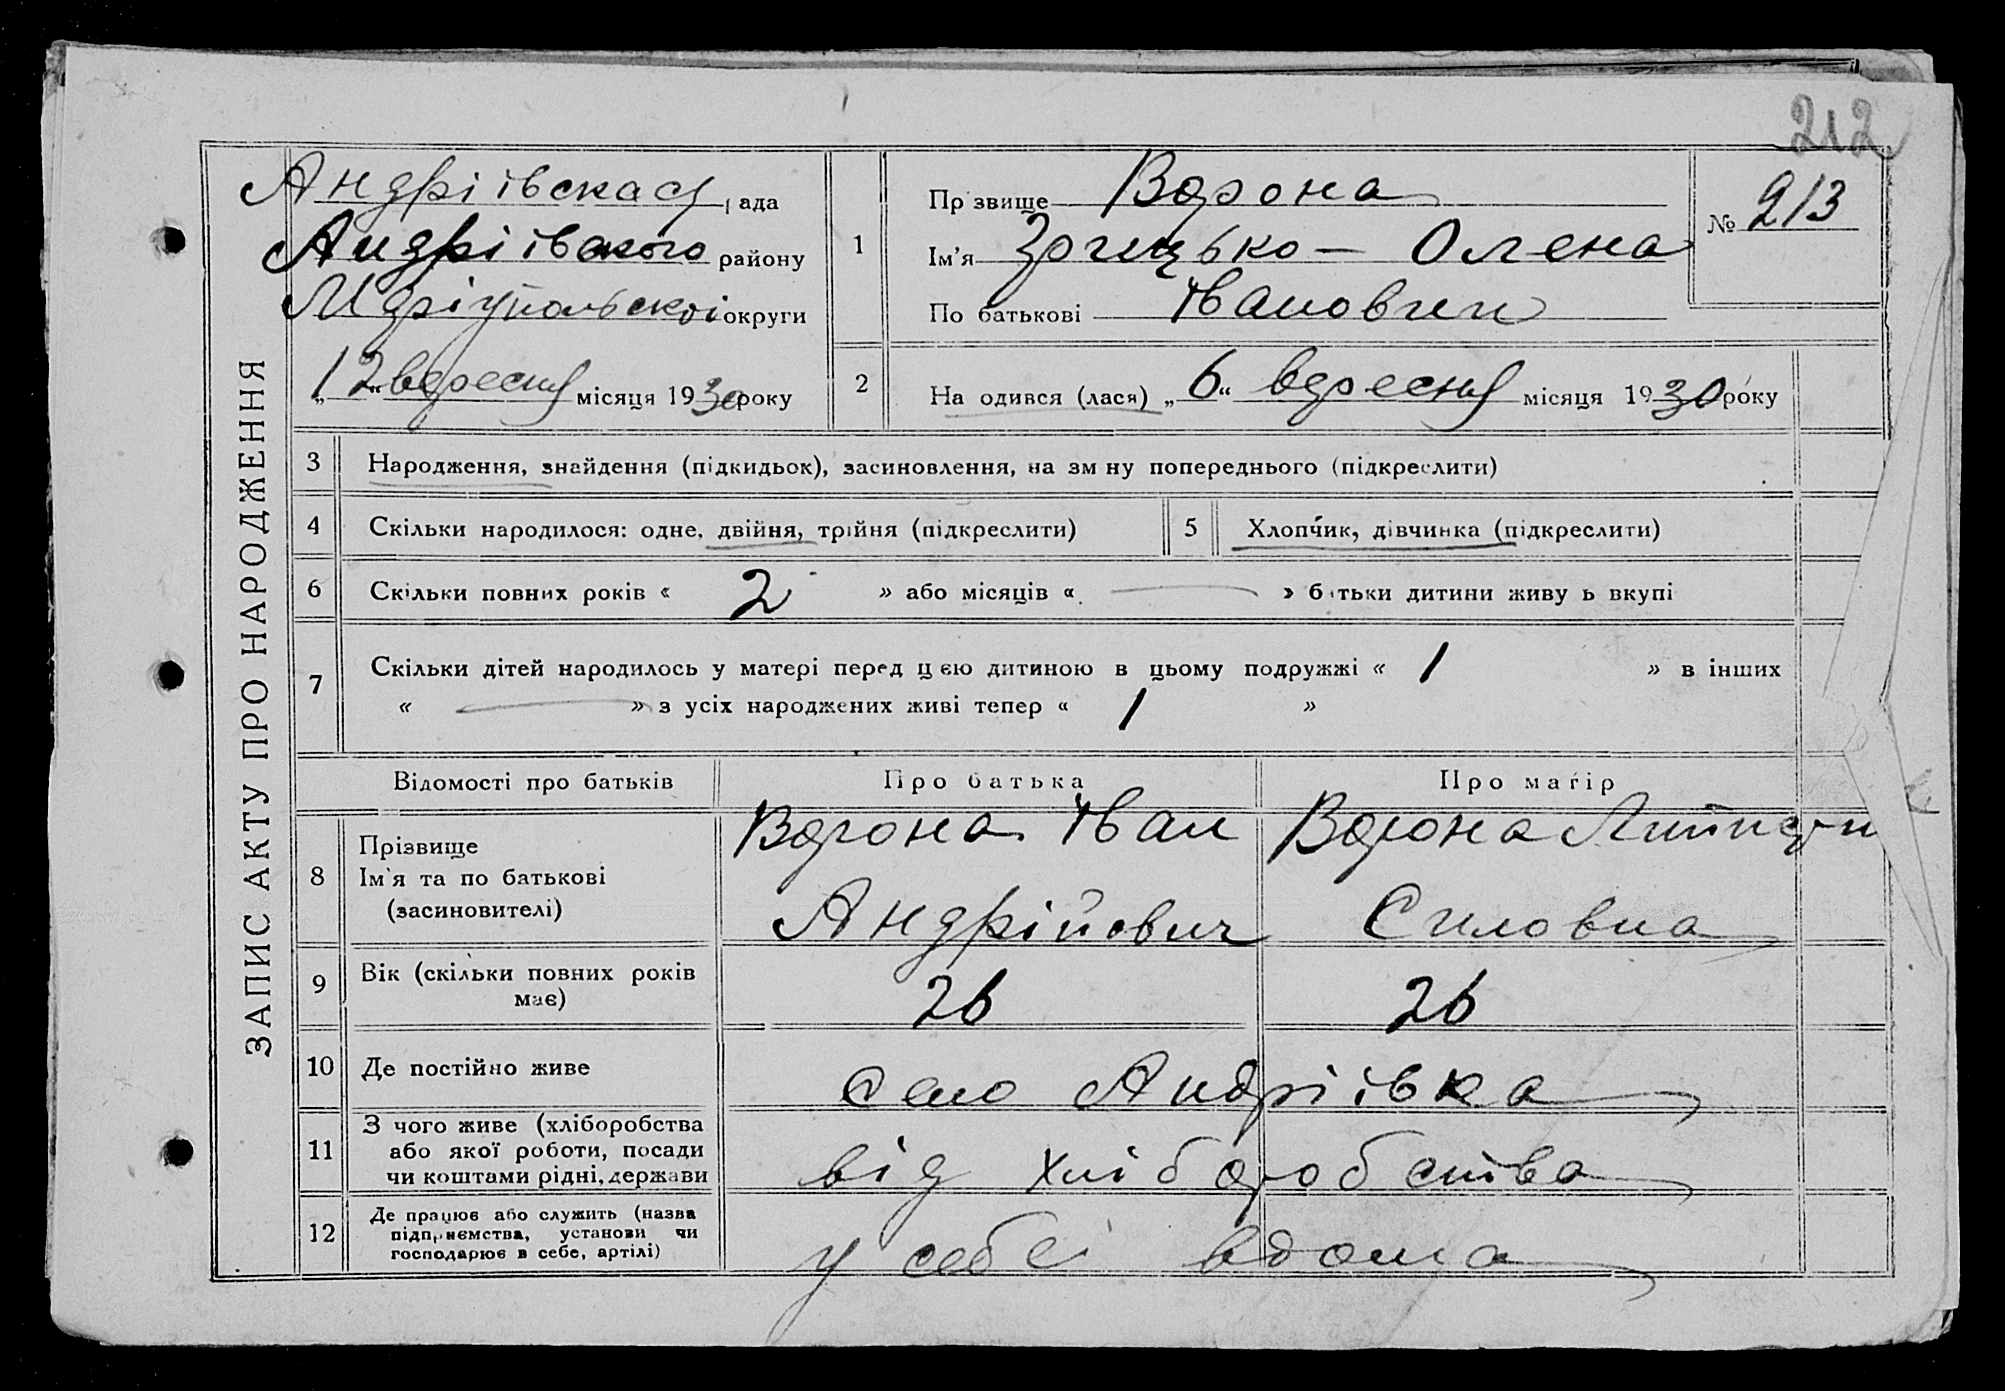 212
ЗАПИС АКТУ ПРО НАРОДЖЕННЯ
Андріївская рада
Андріївского району
Маріупольскоі округи
„12“ вересня місяця 1930 року
1
Прізвище Ворона
Ім'я Грицько — Олена
По батькові Іванович
№ 213
2
Народився (лася) „6“ вересня місяця 1930 року
3 Народження, знайдення (підкидьок), засиновлення, на зміну попереднього (підкреслити)
4 Скільки народилося: одне, двійня, трійня (підкреслити)
5 Хлопчик, дівчинка (підкреслити)
6 Скільки повних років « 2 » або місяців « — » батьки дитини живуть вкупі
7 Скільки дітей народилось у матері перед цією дитиною в цьому подружжі « 1 » в інших
« — » з усіх народжених живі тепер « 1 »
Відомості про батьків Про батька Про матір
8 Прізвище
Ім'я та по батькові
(засиновителі)
Ворона Іван
Андрійович
Ворона
Силовна
9 Вік (скільки повних років
має)
26 26
10 Де постійно живе село Андріївка
11 З чого живе (хліборобства
або якої роботи, посади
чи коштами рідні, держави
від хліборобства
12 Де працює або служить (назва
підприємства, установи чи
господарює в себе, артілі)
у себе вдома